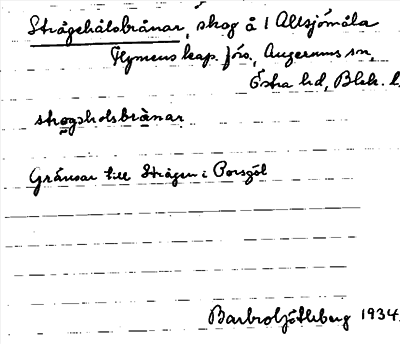 Strågehålsbränar, skog å 1 Allsjömåla
Flymens kap. förs., Augerums sn,
Östra hd, Blek. l.
strogsholsbränar
Gränsar till Strågen i Porsgöl
Barbro Götheberg 1934.